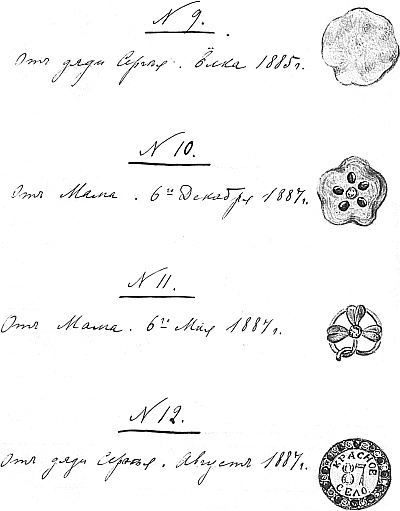 N 9.
Отъ дяди Сергѣя. Ёлка 1885 г.
N 10.
Отъ Мама. 6го Декабря 1887 г.
N 11.
Отъ Мама. 6го Мая 1887 г.
N 12.
Отъ дяди Сергѣя. Августъ 1887 г.
КРАСНОЕ
87
СЕЛО